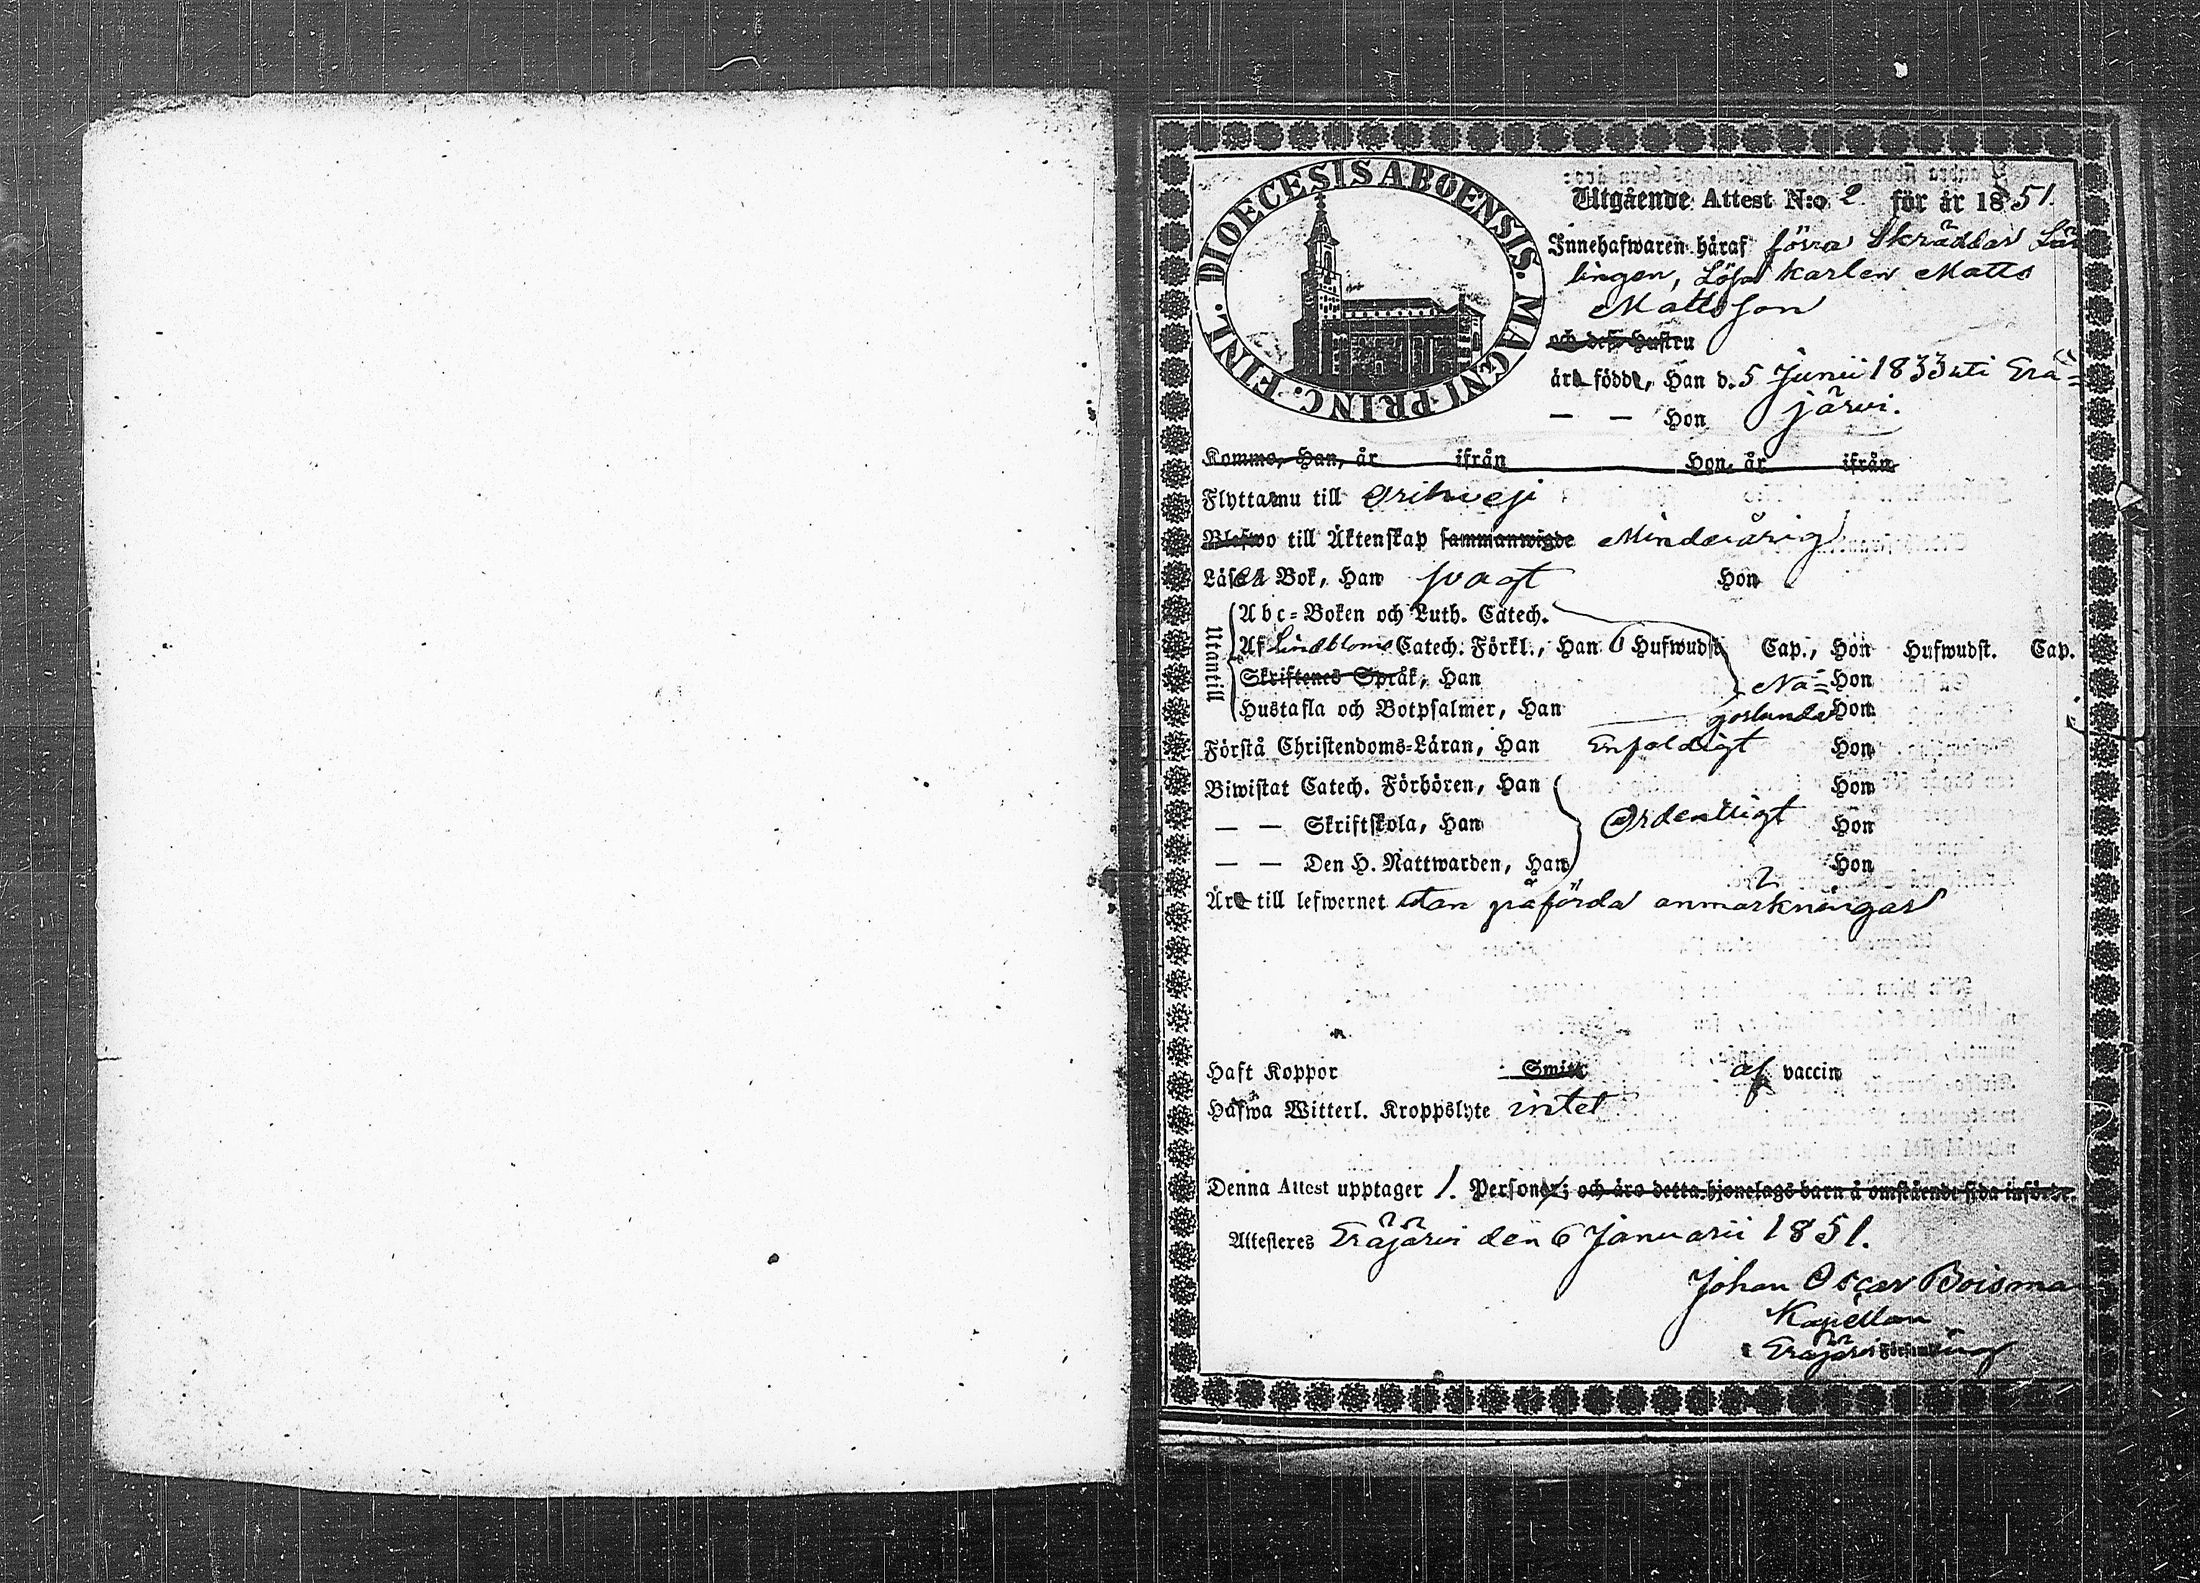 DIOECESIS ABOENSIS. MAGNI PRINC. FINL.
Utgående Attest N:o 2 för år 1851.
Innehafwaren häraf förra Skräddar Lär
lingen, Lösa karlen Matts
Mattsson
och dess Hustru
äro födde, Han d. 5 Junii 1833 uti Erä=
— — Hon järvi.
Kommo, Han, år ifrån Hon, år ifrån
Flytta nu till Orihvesi
Blefwo till Äktenskap sammanwigde Minderårig
Läsa i Bok, Han svagt Hon
Utantill
Abc-Boken och Luth. Catech.
Af Lindbloms Catech. Förkl., Han 6 Hufwudst. Cap., Hon Hufwudst. Cap.
Skriftenes Språk, Han Nå= Hon
Hustafla och Botpsalmer, Han gorlunda Hon
Förstå Christendoms-Läran, Han Enfaldigt Hon
Biwistat Catech. Förhören, Han Hon
— — Skriftskola, Han Ordentligt Hon
— — Den H. Nattwarden, Han Hon
Äro till lefwernet utan påförda anmärkningar
Haft Koppor Smitt af vaccin
Hafwa Witterl. Kroppslyte intet
Denna Attest upptager 1. Personer; och äro detta hjonelags barn å omstående sida införde.
Attesteres Eräjärvi den 6 Januarii 1851.
Johan Oscar Boisma
Kapellan
i Eräjärvi Församling